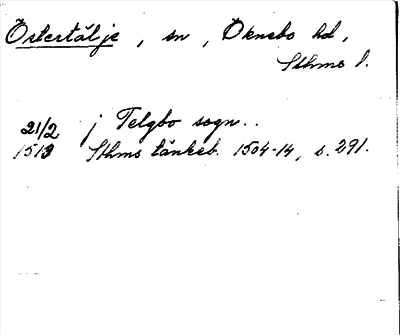 Östertälje, sn, Öknebo hd,
Sthms l.
21/2 j Telgbo sogn..
1513 Sthms tänkeb. 1504-14, s. 291.